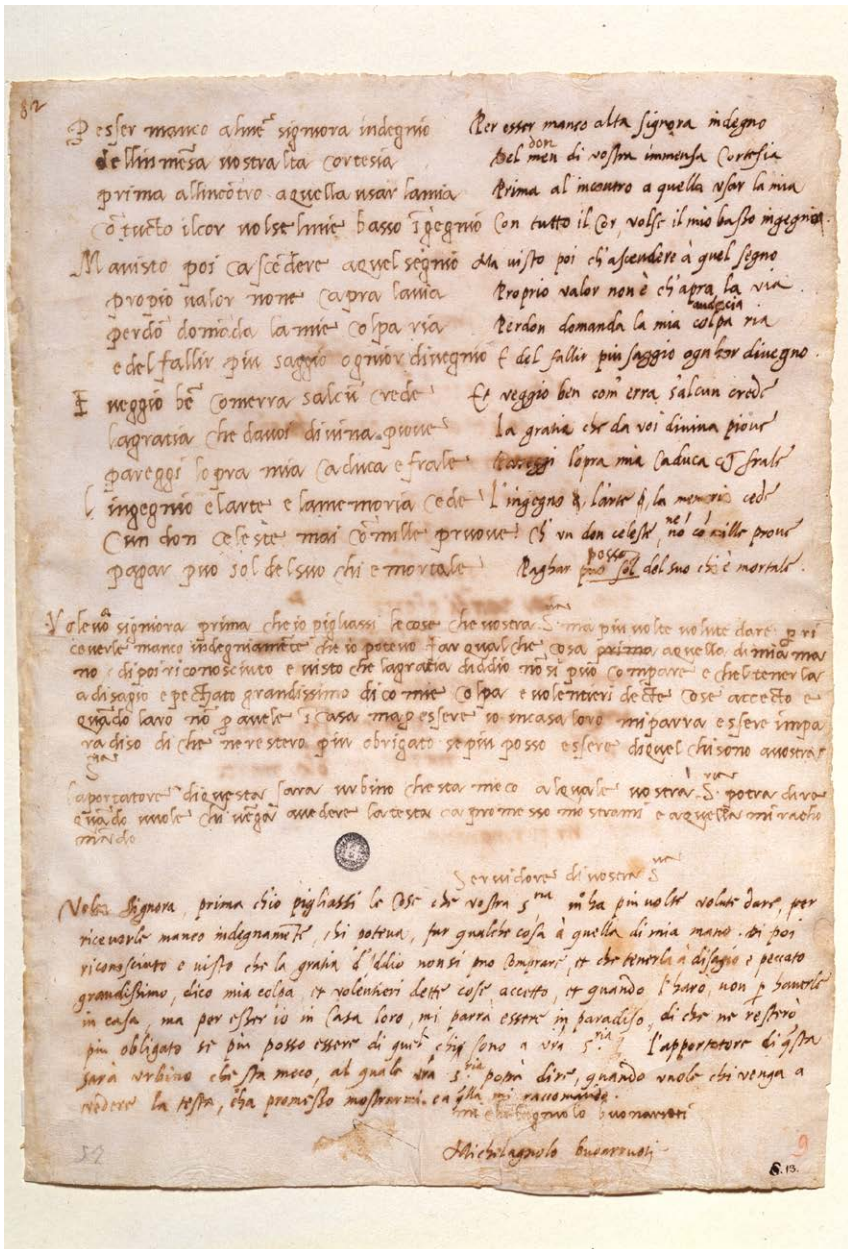 82
P esser manco alme signiora indegnio
dellinmesa vostralta cortesia
prima allincotro aquella usar lamia
co tucto ilcor volselmie basso igegnio
Mavisto poi cascedere aquel segnio
propio valor none capra lavia
perdo domada lamie colpa ria
e del fallir piu saggio ognior divegnio
E veggio be comerra salcu crede
lagratia che davoi divina piove
pareggi lopra mia caduca e frale
L ingegnio elarte e lamemoria cede
Cun don celeste mai co mille pruove
pagar puo sol delsuo chi e mortale
Per esser manco alta signora indegno
don
Del men di vostra immensa Cortesia
Prima al incontro a quella usar la mia
Con tutto il Cor, volse il mio basso ingegno.
Ma visto poi ch'ascendere à quel segno
Proprio valor non è ch'apra la via
audacia
Perdon domanda la mia colpa ria
E del fallir piu saggio ogn hor divegno.
Et veggio ben com' erra s'alcun crede
La gratia che da voi divina piove
l'opra mia Caduca et frale
L'ingegno, l'arte, la memoria cede
Ch' un don celeste, non co' mille prove
posso
Paghar può sol del suo chi è mortale.
Volevo signiora prima cheio pigliassi lecose che vostra S. ma piu volte volute dare p ri
ceverle manco indegniamete cheio potevo far qual che cosa prima aquella dimia ma
no dipoi riconosciuto e visto che lagratia diddio no si puo comprare e chel tenerla
adisagio e pechato grandissimo dico mie colpa e volentieri decte cose accecto e
quado laro no p avele i casa map essere io incasa loro miparra essere impa
radiso di che ne restero piu obrigato sepiu posso essere diquel chisono avostra
S.
laportatore diquesta sara urbino chesta meco alquale vostra S. potra dire
quado vuole chi vega avedere latesta capromesso mostrarmi e aquella mi racho
mado
Servidore di vostra S
Volea Signora, prima ch'io pigliassi le Cose che vostra s.ria m'ha piu volte volute dare, per
riceverle manco indegnamente, chi poteva, far qualche cosa à quella di mia mano. Di poi
riconosciuto e visto che la gratia d'Iddio non si puo Comprare, et che tenerla à disagio e peccato
grandissimo, dico mia colpa, et volentieri dette cose accetto, et quando l'harò, non p haverle
in casa, ma per esser io in Casa loro, mi parrà essere in paradiso, di che ne resterò
piu obligato se piu posso essere di quel chi sono a vra s.ria l'apportatore di qsta
sarà urbino che sta meco, al quale vra s.ria potrà dire, quando vuole chi venga a
vedere la testa, cha promesso mostrarmi. e a qlla mi raccomando.
michelagniolo buonarroti
Michelagnolo buonarruoti
52
9
S. 13.